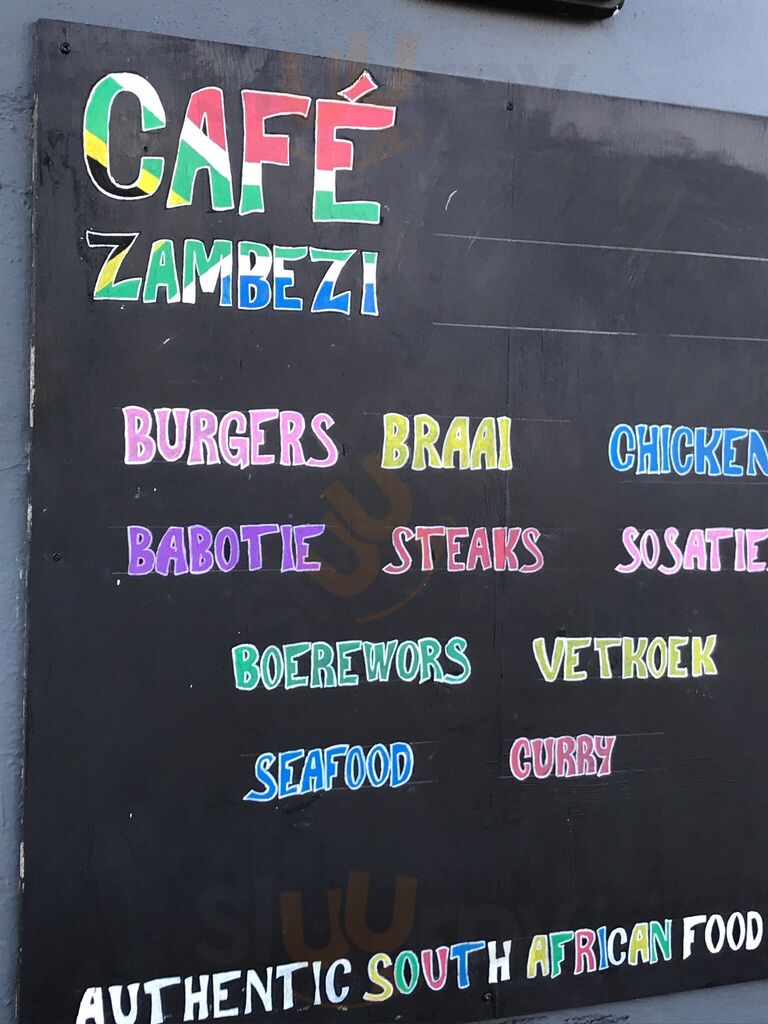 CAFÉ
ZAMBEZI
BURGERS BRAAI CHICKEN
BABOTIE STEAKS SOSATIE
BOEREWORS VETKOEK
SEAFOOD CURRY
AUTHENTIC SOUTH AFRICAN FOOD